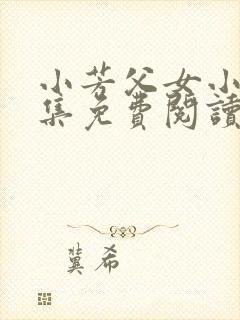 小芳父女小
集免費閱讀
冀希